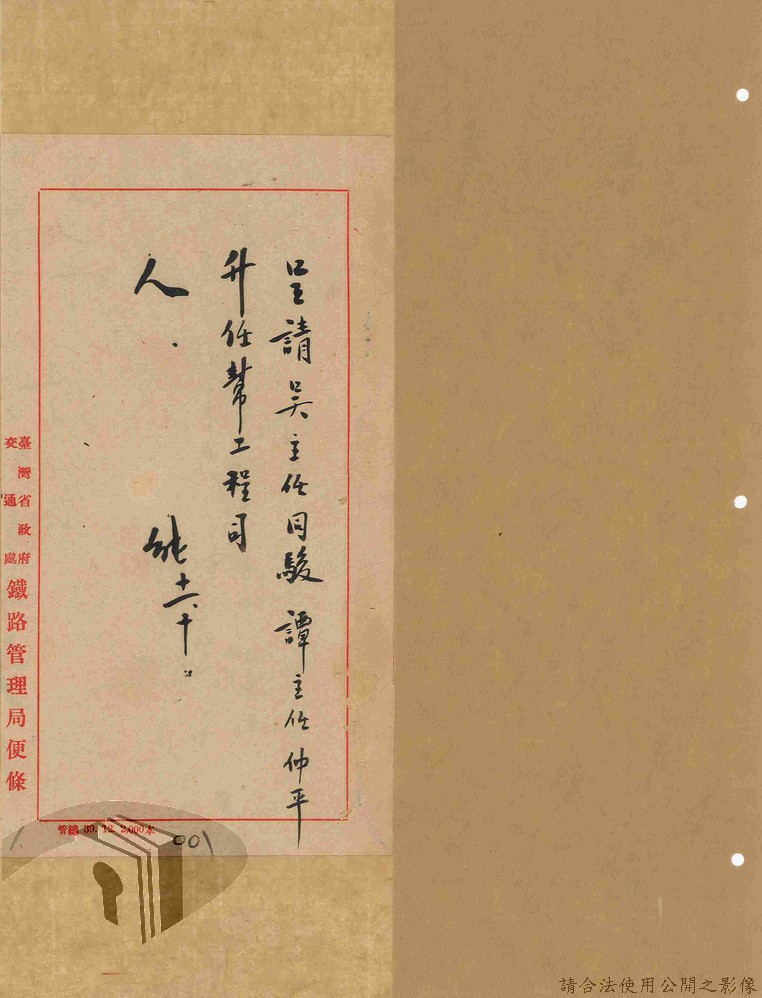 呈請吳主任同駿 譚主任仲平
升任幫工程司
人.
臺灣省政府
交通處
鐵路管理局便條
管鐵 39. 12. 2,000本
請合法使用公開之影像